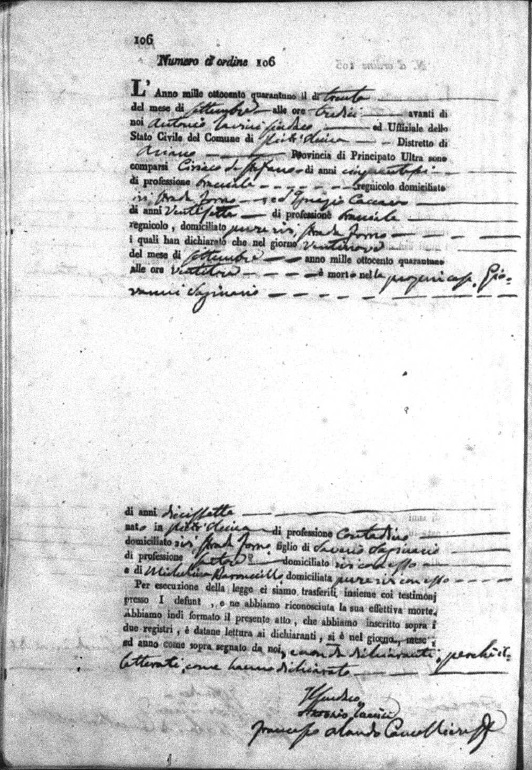 106
Numero d'ordine 106
L'Anno mille ottocento quarantuno il dì trenta
del mese di settembre alle ore tredici avanti di
noi Antonio Iarrici Sindaco ed Uffiziale dello
Stato Civile del Comune di Distretto di
Ariano Provincia di Principato Ultra sono
comparsi Ciriaco de Stefano di anni cinquantasei
di professione bracciale regnicolo domiciliato
ivi strada Forno ed Ignazio Caccavo
di anni ventisette di professione bracciale
regnicolo, domiciliato pure ivi strada Forno
i quali han dichiarato che nel giorno ventinove
del mese di settembre anno mille ottocento quarantuno
alle ore ventitre è morto nella propria casa Gio=
vanni Sapinario
di anni diciassette
nato in di professione Contadino
domiciliato ivi strada Forno figlio di Saverio Sapinario
di professione domiciliato ivi con esso
e di Michelina domiciliata pure ivi con esso
Per esecuzione della legge ci siamo trasferiti insieme coi testimonj
presso l defunt o e ne abbiamo riconosciuta la sua effettiva morte.
Abbiamo indi formato il presente atto, che abbiamo inscritto sopra i
due registri, è datane lettura ai dichiaranti, si è nel giorno, mese,
ed anno come sopra segnato da noi, dichiaranti perché il=
letterati, come hanno dichiarato
Il Sindaco
Antonio Iarrici
Francesco Orlando Cancelliere